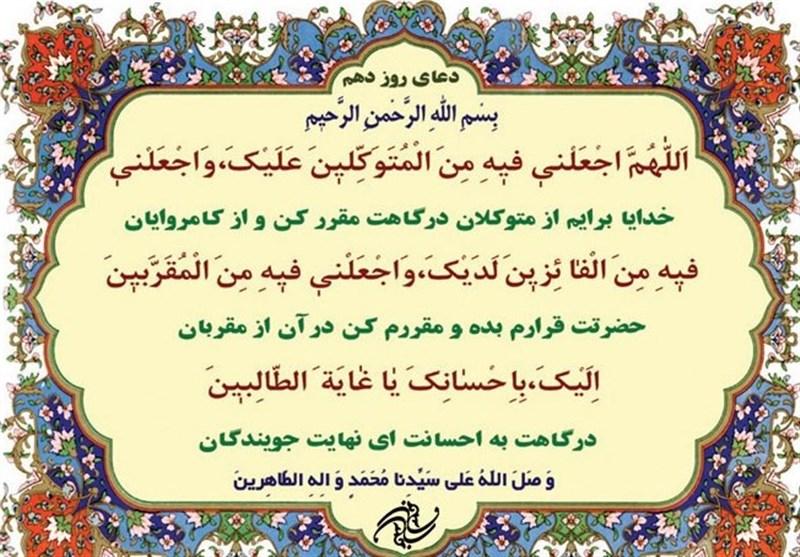 دعای روز دهم
بِسْمِ اللهِ الرَّحْمنِ الرَّحیمِ
اَللّٰهُمَّ اجْعَلْنی فیهِ مِنَ الْمُتَوَکِّلینَ عَلَیْکَ،وَاجْعَلْنی
خدایا برایم از متوکلان درگاهت مقرر کن و از کامروایان
فیهِ مِنَ الْفاٰئِزینَ لَدَیْکَ،وَاجْعَلْنی فیهِ مِنَ الْمُقَرَّبینَ
حضرتت قرارم بده و مقررم کن در آن از مقربان
اِلَیْکَ،بِاِحْسٰانِکَ یٰا غٰایَةَ الطّالِبینَ
درگاهت به احسانت ای نهایت جویندگان
وَ صَلَ اللّهُ عَلی سَیِّدِنا مُحَمَدٍ وَ الِهِ الطّاهِرینَ